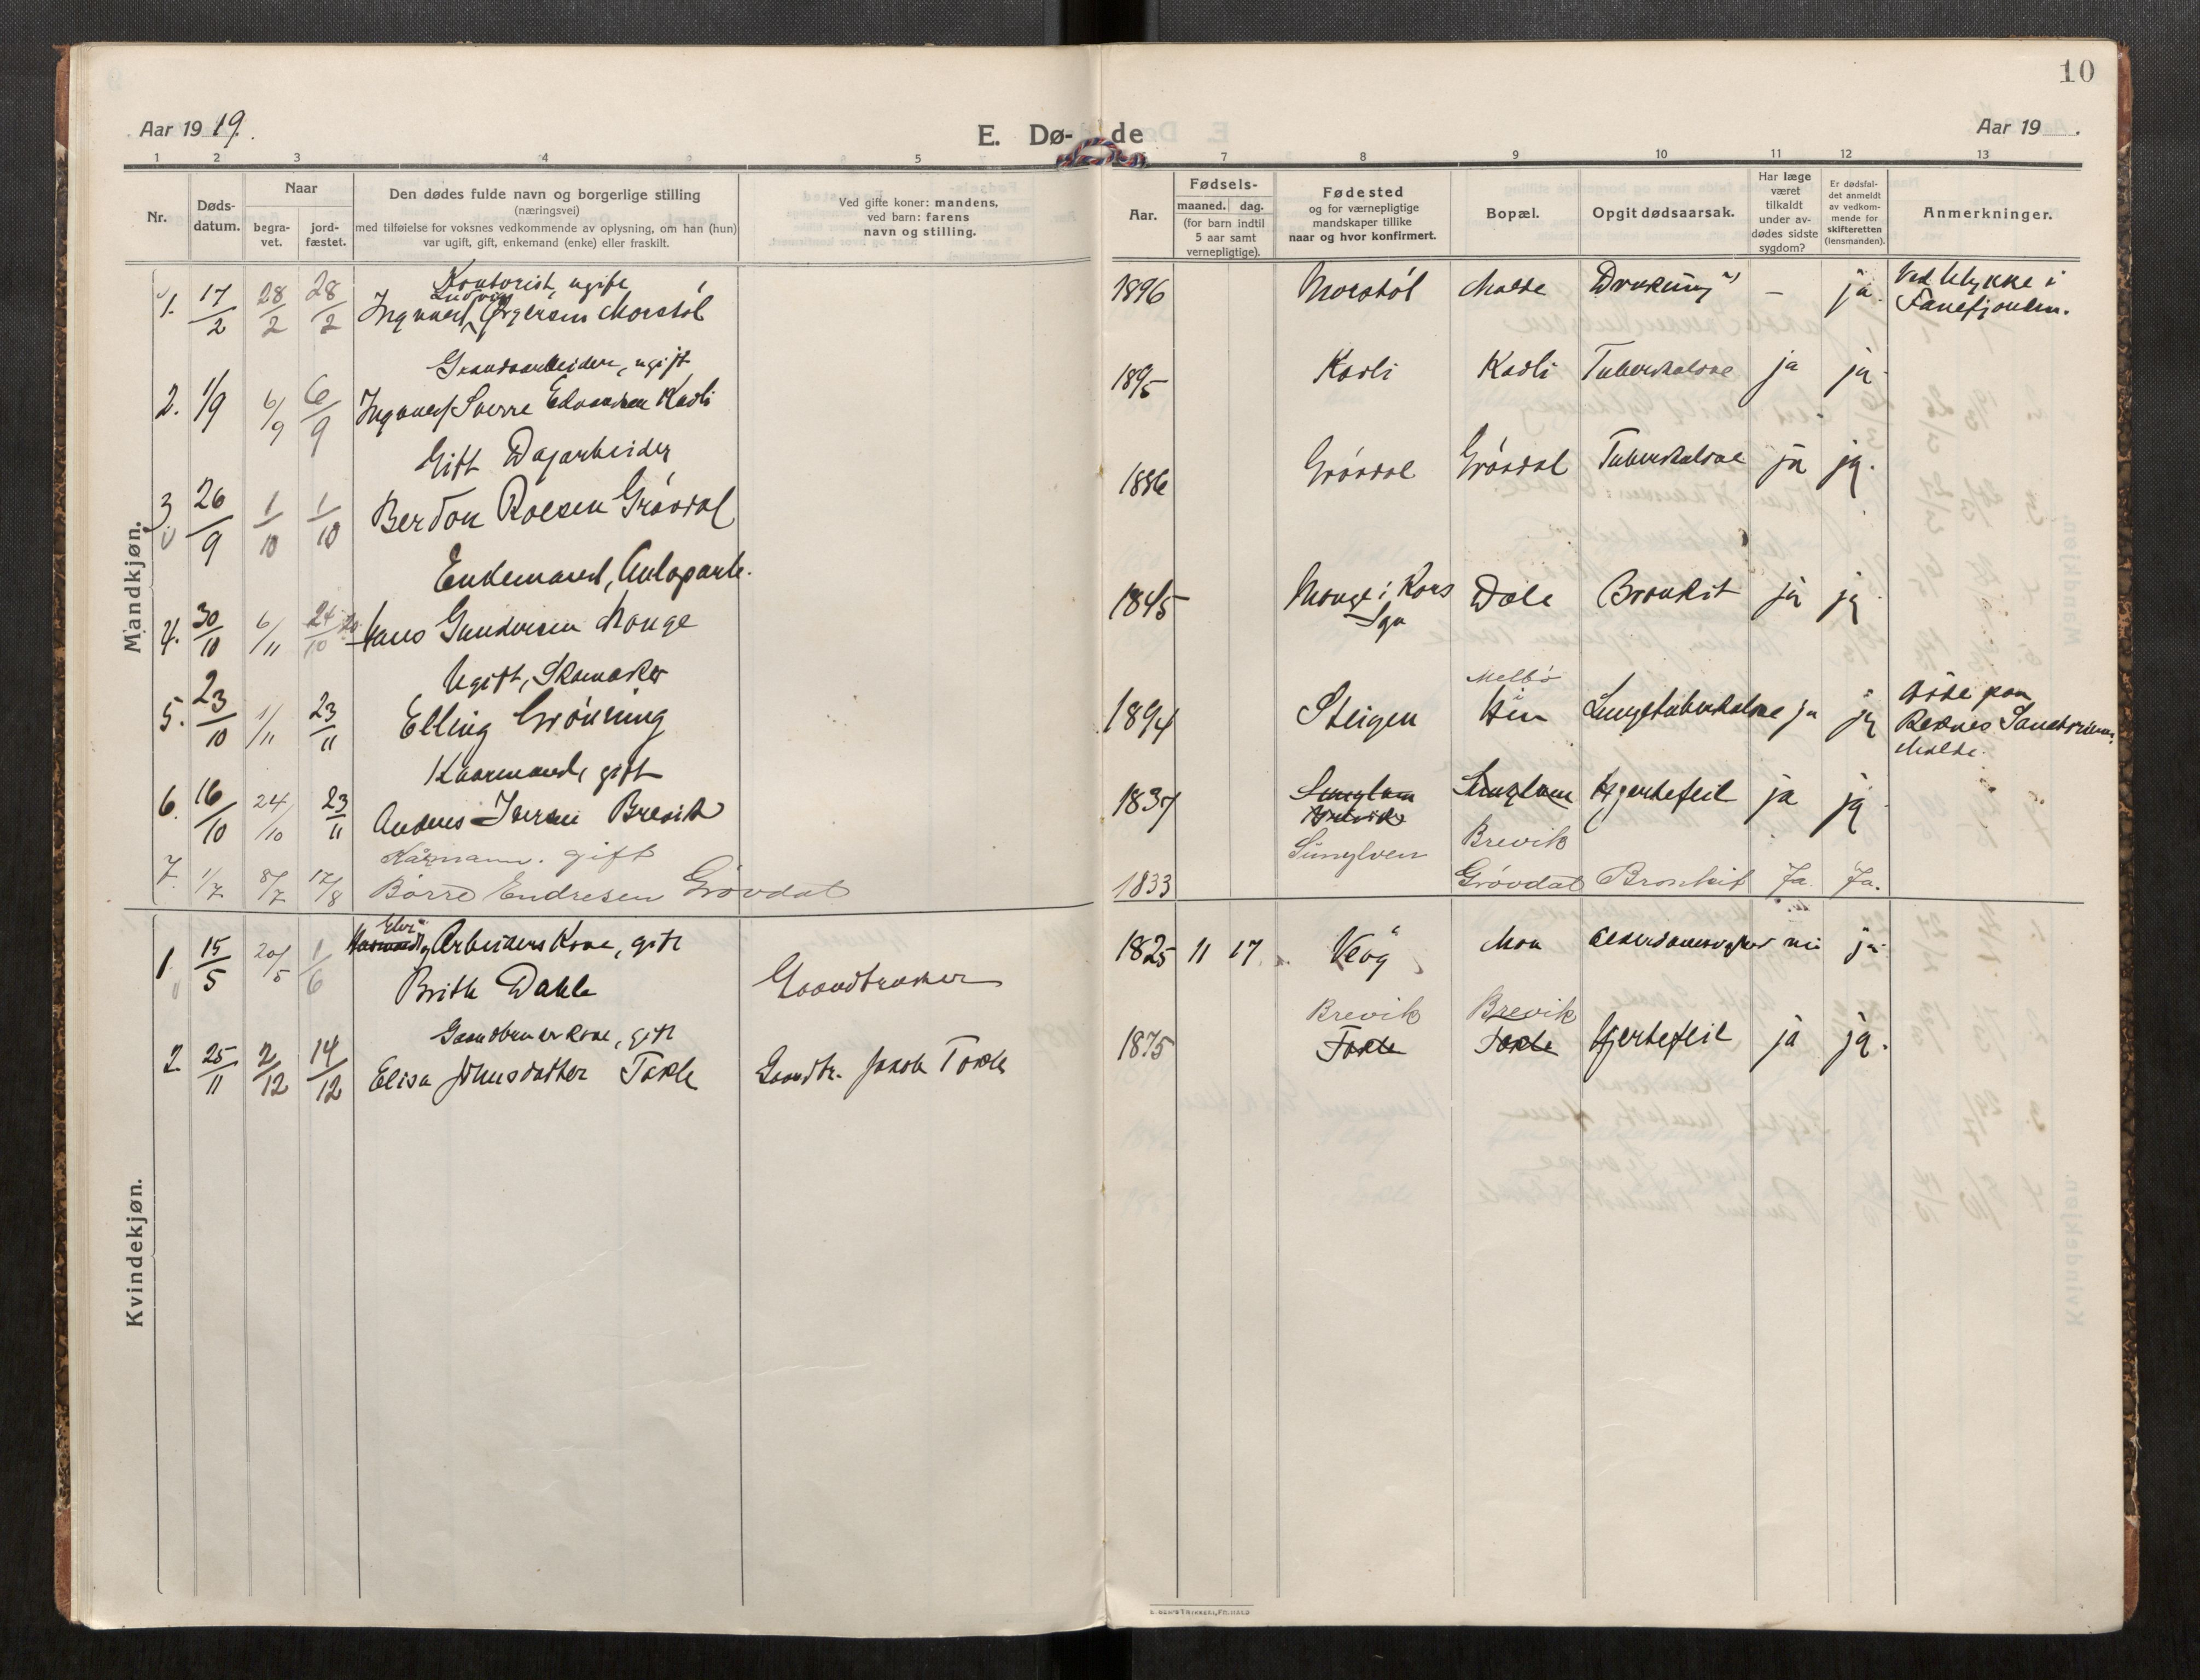 10
Aar 1919.
E. Dø- de
Aar 19 .
1 2 3 4 5 7 8 9 10 11 12 13
Nr.
Døds-
datum.
Naar
begra-
vet.
jord-
fæstet.
Den dødes fulde navn og borgerlige stilling
(næringsvei)
med tilføielse for voksnes vedkommende av oplysning, om han (hun)
var ugift, gift, enkemand (enke) eller fraskilt.
Ved gifte koner: mandens,
ved barn: farens
navn og stilling.
Aar.
Fødsels-
maaned. dag.
(for barn indtil
5 aar samt
vernepligtige).
Fødested
og for værnepligtige
mandskaper tillike
naar og hvor konfirmert.
Bopæl.
Opgit dødsaarsak.
Har læge
været
tilkaldt
under av-
dødes sidste
sygdom?
Er dødsfal-
det anmeldt
av vedkom-
mende for
skifteretten
(lensmanden).
Anmerkninger.
Mandkjøn.
Kontorist, ugift
Ludvig
1. 17/2 28/2 28/2 Ingvald Ørgersen Morstøl 1896 Morstøl Molde Drukning – ja. Ved Ulykke i
Fanefjorden.
Gaardsarbeider, ugift
2. 1/9 6/9 6/9 Ingvald Sverre Edvardsen Kavli 1895 Kavli Kavli Tuberkulose ja ja
Gift Dagarbeider
3 26/9 1/10 1/10 Berdon Roesen Grøvdal 1886 Grøvdal Grøvdal Tuberkulose ja ja.
Enkemand,
4. 30/10 6/11 24/10 20 Hans Gundersen Monge 1845 Monge i Kors Sgn Dale Bronkit ja ja
Ugift, Skomaker
5. 23/10 1/11 23/11 Elling Grönning 1894 Steigen Melbø Hen Lungetuberkulose ja ja døde paa
Reknes Sanatorium
Molde.
Kaarmand, gift
6. 16/10 24/10 23/11 Anders Iversen Brevik 1837 Sunglven Brevik Sunylven Sunylven Brevik Hjertefeil ja ja
Kårmann. gift
7. 1/7 8/7 17/8 Børre Endresen Grøvdal 1833 Grøvdal Bronkit Ja. Ja.
Kvindekjøn.
Arbeiders Kone, gift
1. 15/5 20/5 1/6 Brith Dahle Gaardbruker 1825 11 17 Veøy Moa Alderdomssvakhet nei ja
Gaardbrukerkone, gift
2. 25/11 2/12 14/12 Elisa Johnsdatter Torhle Gaardbr. Jakob Torhle 1875 Brevik Brevik Hjertefeil ja ja.